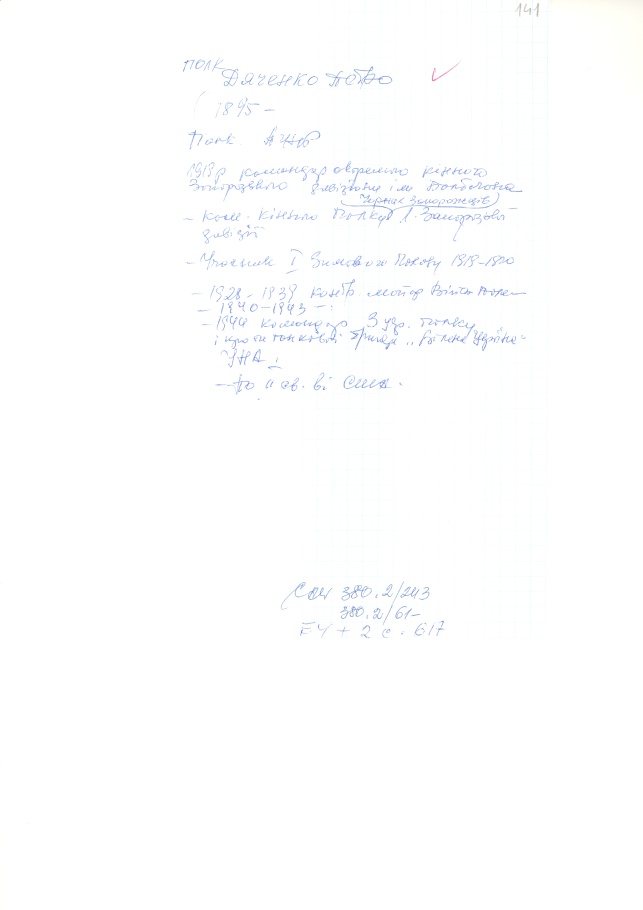 141
полк
Дяченко Петро
(1895 -
Полк. АУНР
1919 р командир окремого кінного
Запорізького дивізіону ім Болбочана
Чорних Запорожців
- ком. Кінного Полку 1. Запорізької
дивізії
- Учасник I Зимового Походу 1919-1920
- 1928-1939 контр. майор Війська
- 1940-1943 -
- 1944 командир 3 укр. полку
і протитанкової бригади „Вільна Україна"
УНА.
- По II св. ві США.
380.2/243
380.2/61-
ЕУ + 2 с. 617